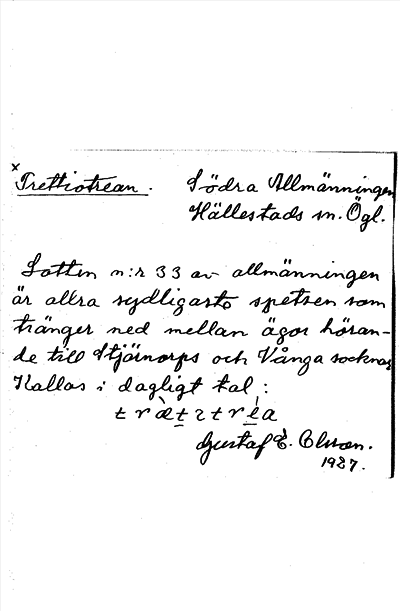 x Trettiotrean. Södra Allmänningen
Hällestads sn. Ögl.
Lotten n:r 33 av allmänningen
är allra sydligaste spetsen som
tränger ned mellan ägor höran-
de till Stjärnorps och Vånga socknar
Kallas i dagligt tal:
Gustaf E. Olsson.
1927.